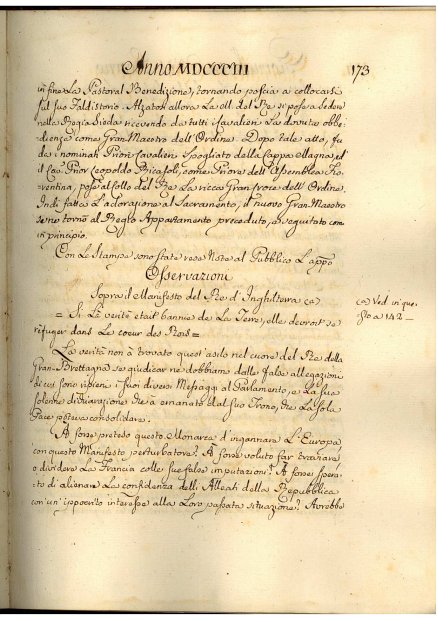 Anno MDCCCIII 173
in fine la Pastoral Benedizione, tornando poscia a collocarsi
sul suo Faldistorio. Alzatosi allora La M. del Re si pose a sedere
nella Regia Sieda ricevendo da tutti i Cavalieri La dovuta obbe-
dienza come Gran Maestro dell'Ordine. Dopo tale atto, fu
da i nominati Priori Cavalieri spogliato della Cappa Magna, ed
il Cav. Prior Leopoldo Ricasoli, come Priore dell'Assemblea Fio-
=rentina, pose al Collo del Re La ricca Gran Croce dell'Ordine.
Indi fatta L'adorazione al Sacramento, il nuovo Gran Maestro
se ne tornò al Reglo Appartamento preceduto, e seguitato come
in principio.
Con Le Stampe sono state rese Note al Pubblico L'appo
Osservazioni
Sopra il Manifesto del Re d'Inghilterra (a)
(a) Ved. in que-
sto a 142 _
= Si Le verité etait bannie de La Terre, elle devroit se
refuger dans Le coeur des Rois =
La verità non à trovato quest'asilo nel cuore del Re della
Gran-Brettagna se giudicar ne dobbiamo dalle false allegazioni
di cui sono ripieni i suoi diversi Messaggi al Parlamento, e La sua
solenne dichiarazione che à emanato dal suo Trono, che La sola
Pace poteva consolidare.
À forse preteso questo Monarca d'ingannare L'Europa
con questo Manifesto perturbatore? À forse voluto far traviare
o dividere La Francia colle sue false imputazioni? À forse spera-
to di alienare La confidenza delli Alleati della Repubblica
con un'ipocrito interesse alla Loro passata situazione? Avrebbe